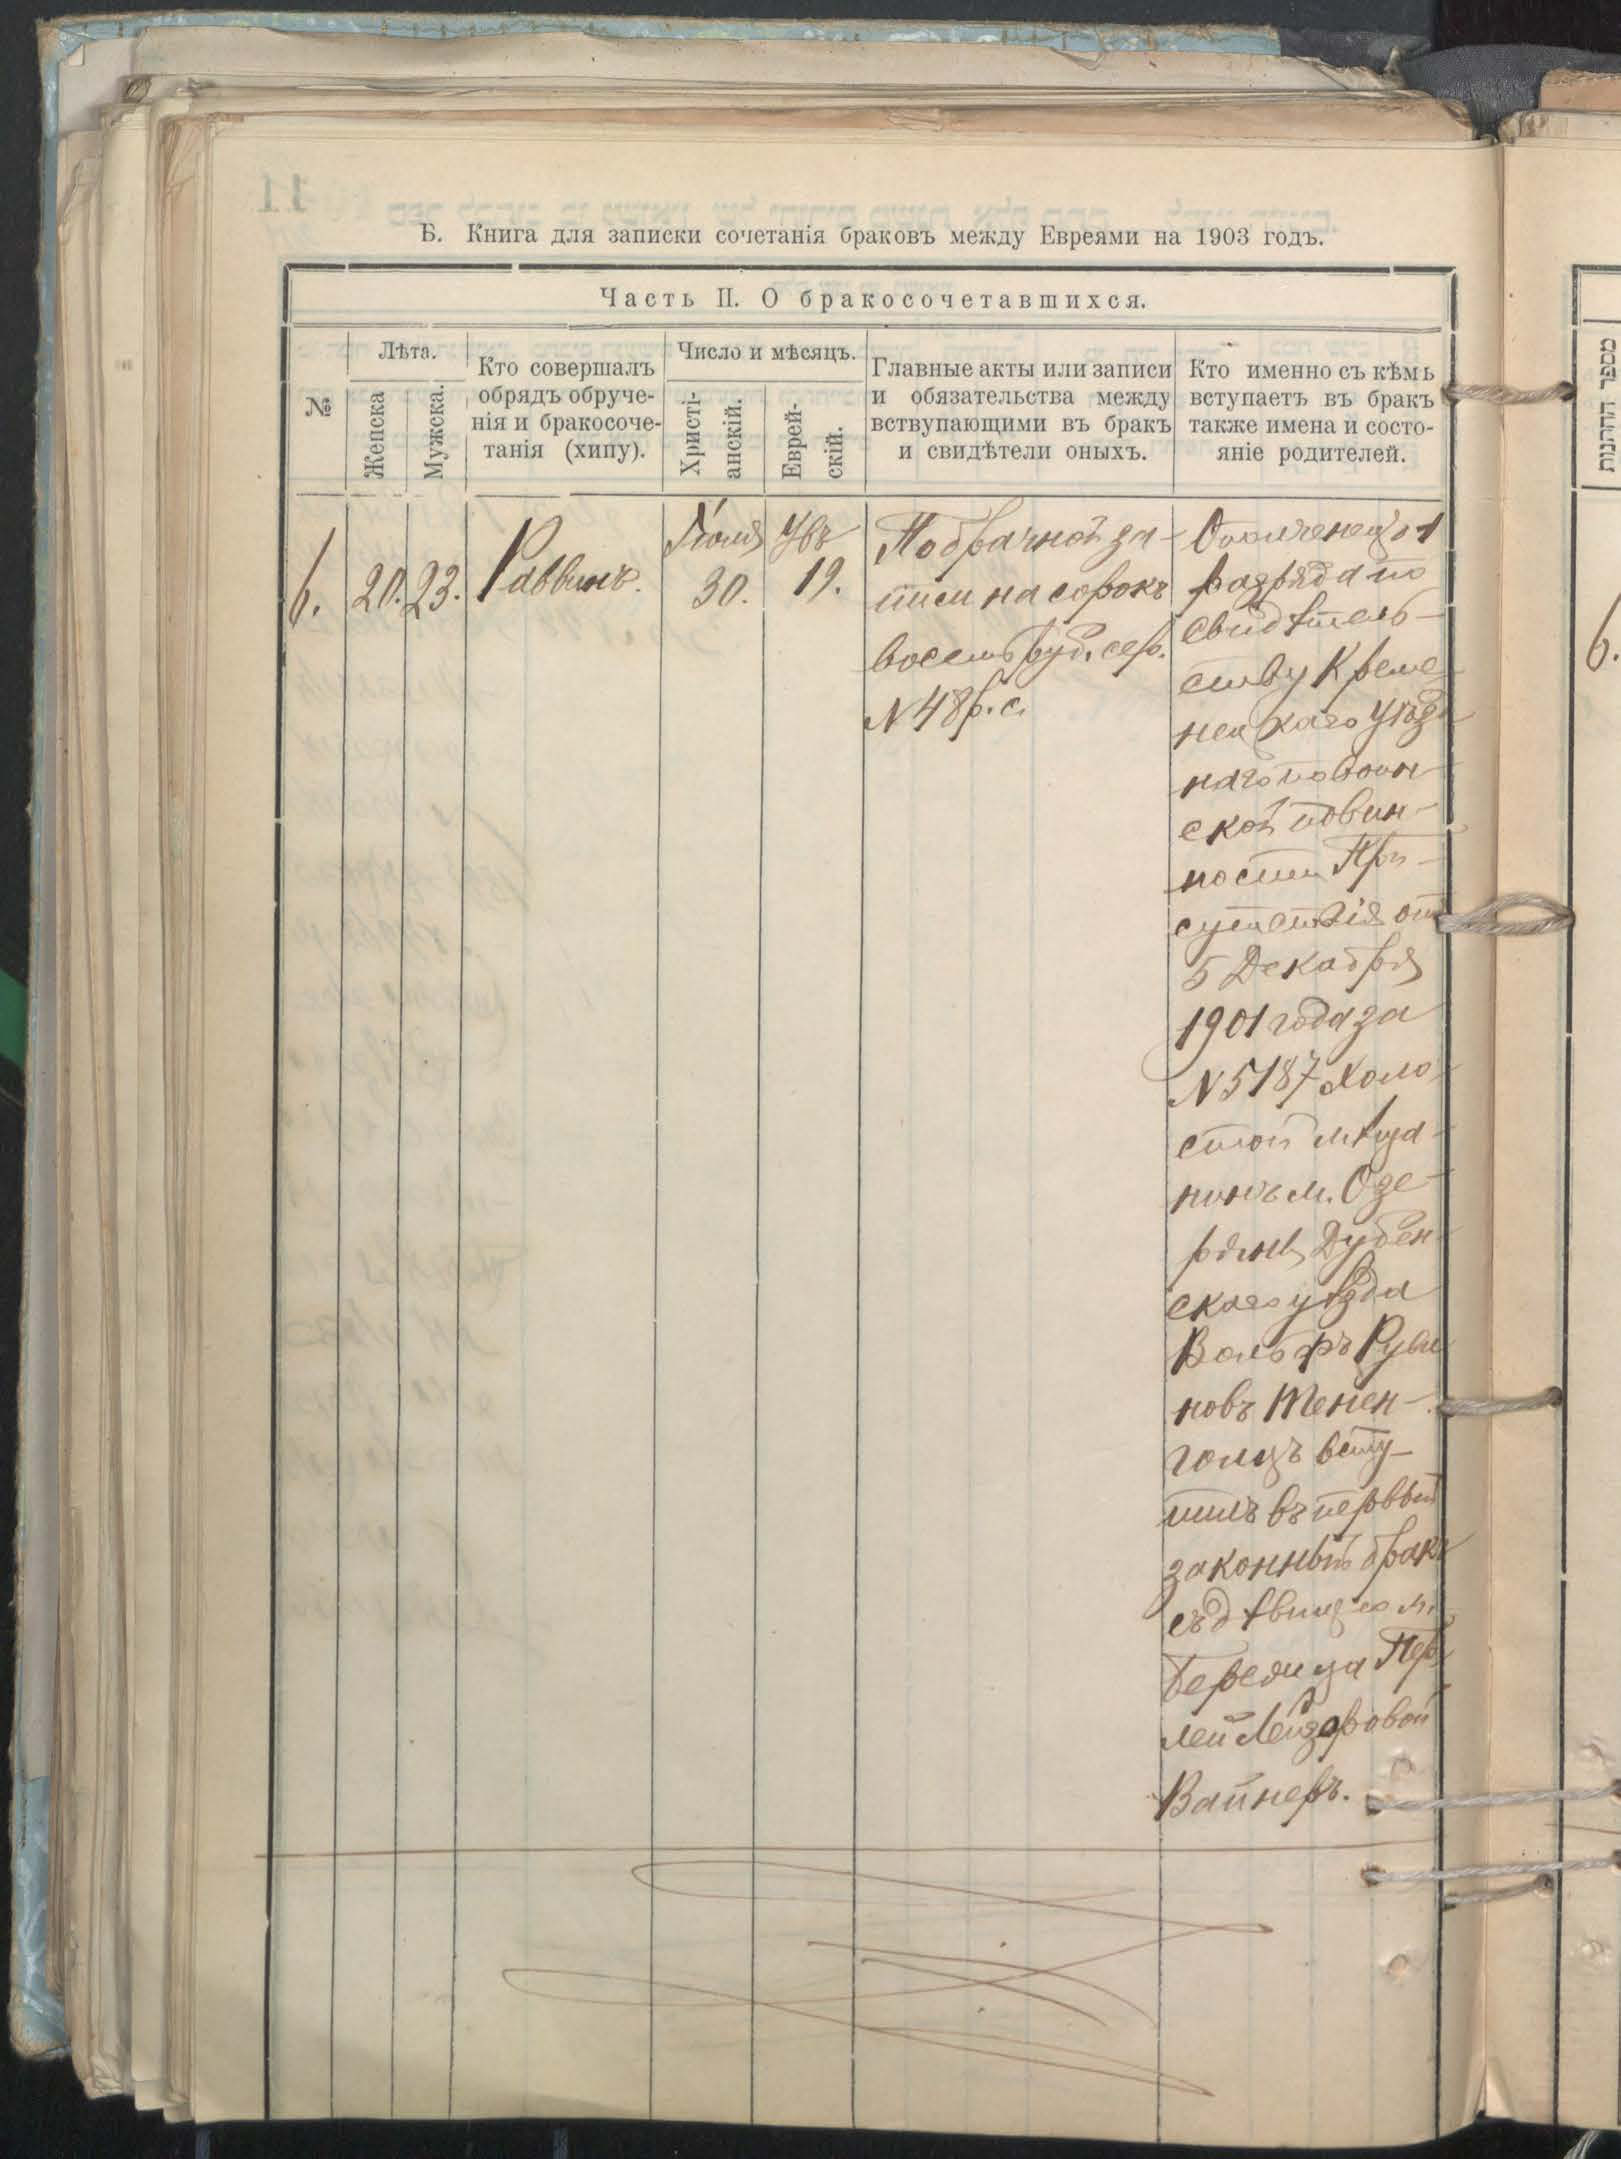 Б. Книга для записки сочетанія браковъ между Евреями на 1903 годъ.
Часть II. О бракосочетавшихся.
№
Лѣта.
Женска
Мужска.
Кто совершалъ
обрядъ обруче-
нія и бракосоче-
танія (хипу).
Число и мѣсяцъ.
Христі-
анскій.
Еврей-
скій.
Главные акты или записи
и обязательства между
вствупающими въ бракъ
и свидѣтели оныхъ.
Кто именно съ кѣмъ
вступаетъ въ бракъ
также имена и состо-
яніе родителей.
6.
20.
23.
Раввинъ.
30.
19.
По брачной за-
писи на сорокъ
восемь руб. сер.
N 48 р. с.
Ополченецъ 1
разряда по
свидѣтель-
ству Креме-
нецкаго Уѣзд
наго по воин-
ской повин-
ности При-
сутствія от
5 Декабря
1901 года за
N 5187 холо-
стой мѣща-
нинъ м. Озе-
рянъ Дубен-
скаго уѣзда
Вольфъ Руви
новъ Тенен-
гольцъ всту-
пилъ въ первый
законный бракъ
съ дѣвицею м.
Берестца Пер
лей Лейзеровой
Вайнеръ.
מספר החתנות
6.